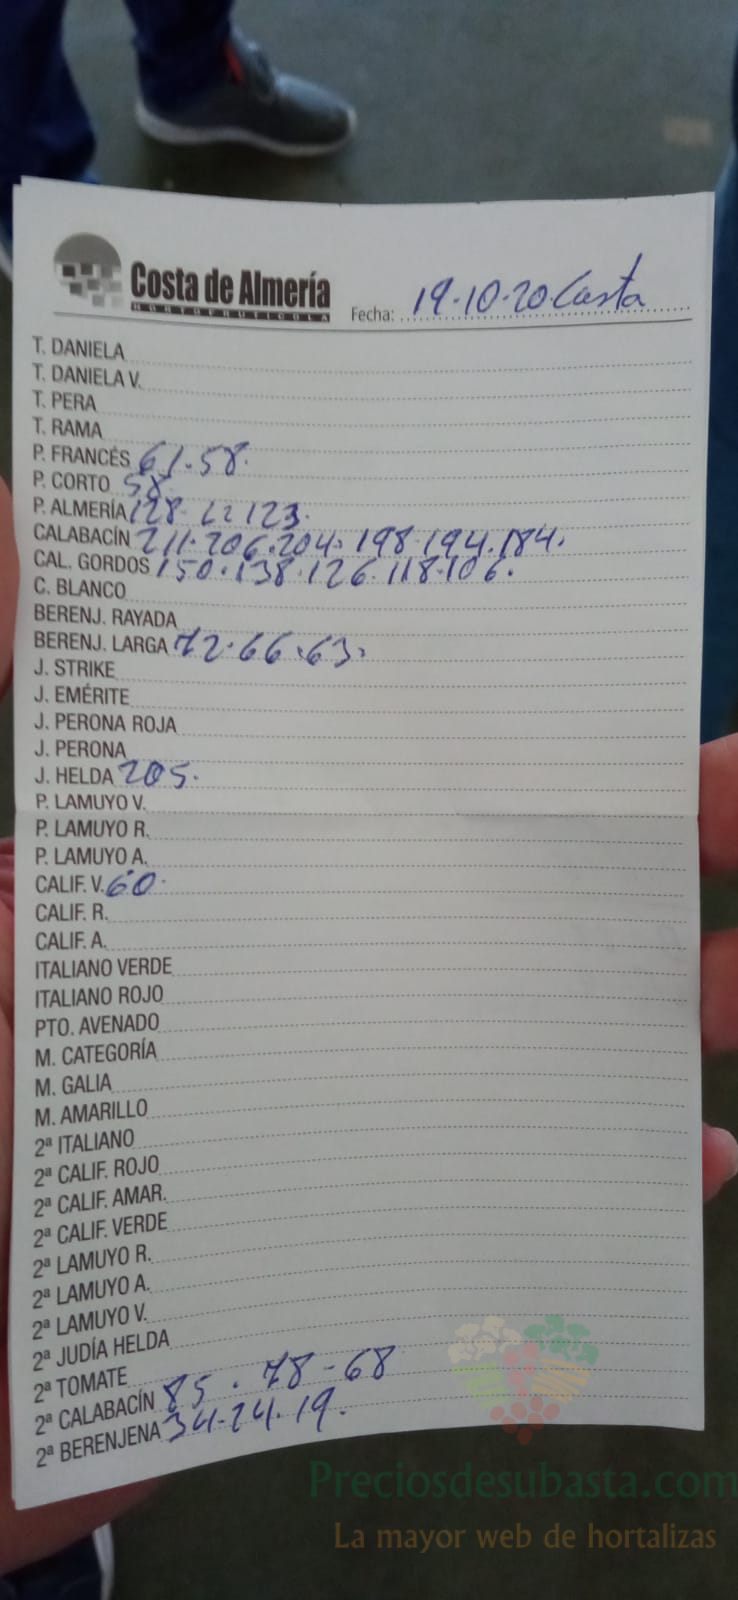 Costa de Almería
HORTOFRUTICOLA
Fecha: 19.10.20 Costa
T. DANIELA
T. DANIELA V.
T. PERA
T. RAMA
P. FRANCÉS 61.58.
P. CORTO 58
P. ALMERÍA 128 123.
CALABACÍN 211.206.204.198.194.184.
CAL. GORDOS 150.138.126.118.106.
C. BLANCO
BERENJ. RAYADA
BERENJ. LARGA 72.66.63.
J. STRIKE
J. EMÉRITE
J. PERONA ROJA
J. PERONA
J. HELDA 205.
P. LAMUYO V.
P. LAMUYO R.
P. LAMUYO A.
CALIF. V. 60.
CALIF. R.
CALIF. A.
ITALIANO VERDE
ITALIANO ROJO
PTO. AVENADO
M. CATEGORÍA
M. GALIA
M. AMARILLO
2ª ITALIANO
2ª CALIF. ROJO
2ª CALIF. AMAR.
2ª CALIF. VERDE
2ª LAMUYO R.
2ª LAMUYO A.
2ª LAMUYO V.
2ª JUDÍA HELDA
2ª TOMATE
2ª CALABACÍN 85.78-68
2ª BERENJENA 34.24.19.
Preciosdesubasta.com
La mayor web de hortalizas